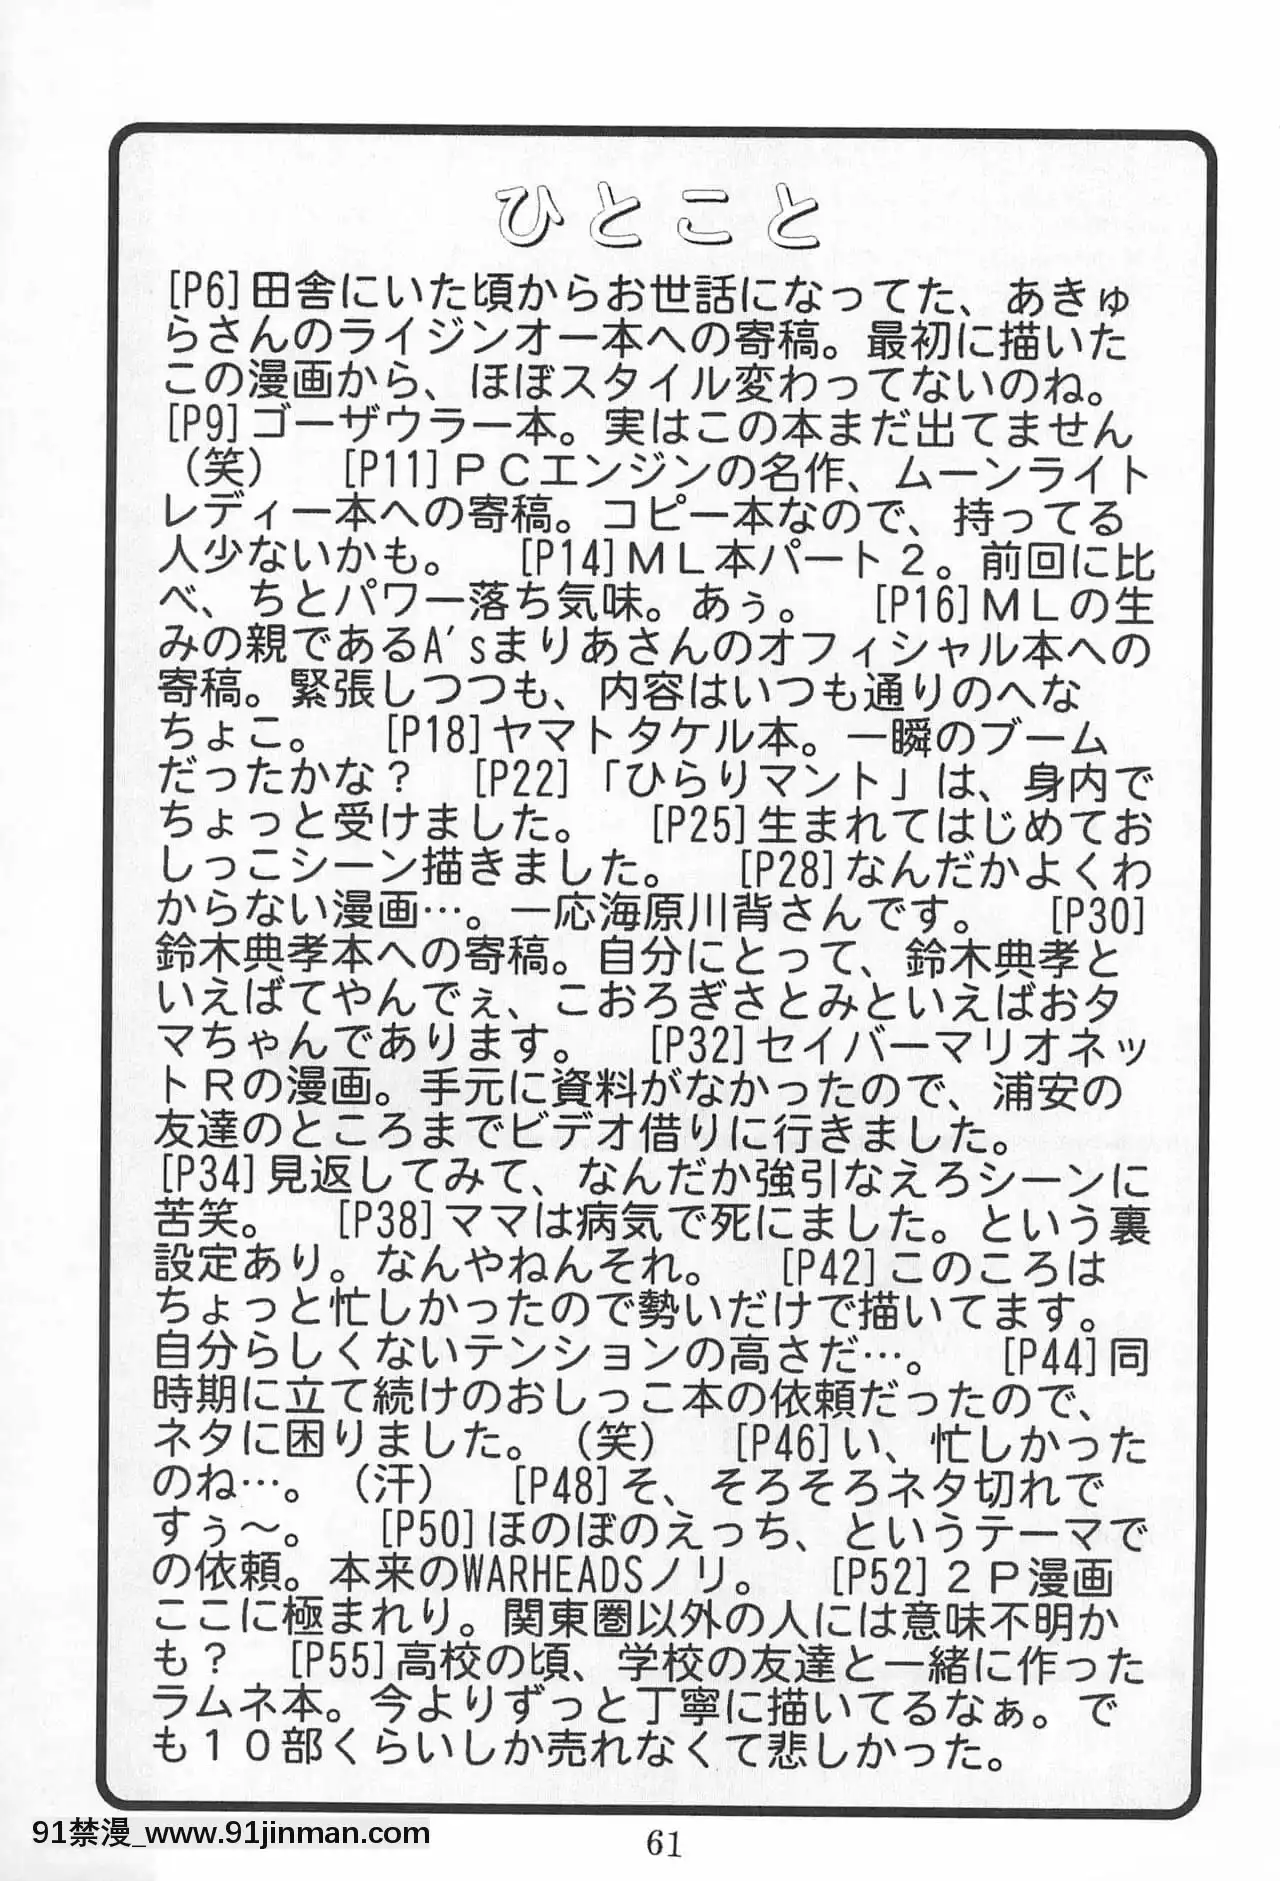 ひとこと
[P6]田舎にいた頃からお世話になってた、あきゅ
らさんのライジンオー本への寄稿。最初に描いた
この漫画から、ほぼスタイル変わってないのね。
[P9]ゴーザウラー本。実はこの本まだ出てません
（笑）　[P11]ＰＣエンジンの名作、ムーンライト
レディー本への寄稿。コピー本なので、持ってる
人少ないかも。　[P14]ＭＬ本パート２。前回に比
べ、ちとパワー落ち気味。あぅ。　[P16]ＭＬの生
みの親であるA'sまりあさんのオフィシャル本への
寄稿。緊張しつつも、内容はいつも通りのへな
ちょこ。　[P18]ヤマトタケル本。一瞬のブーム
だったかな？　[P22]「ひらりマント」は、身内で
ちょっと受けました。　[P25]生まれてはじめてお
しっこシーン描きました。　[P28]なんだかよくわ
からない漫画…。一応海原川背さんです。　[P30]
鈴木典孝本への寄稿。自分にとって、鈴木典孝と
いえばてやんでぇ、こおろぎさとみといえばおタ
マちゃんであります。　[P32]セイバーマリオネッ
トＲの漫画。手元に資料がなかったので、浦安の
友達のところまでビデオ借りに行きました。
[P34]見返してみて、なんだか強引なえろシーンに
苦笑。　[P38]ママは病気で死にました。という裏
設定あり。なんやねんそれ。　[P42]このころは
ちょっと忙しかったので勢いだけで描いてます。
自分らしくないテンションの高さだ…。　[P44]同
時期に立て続けのおしっこ本の依頼だったので、
ネタに困りました。（笑）　[P46]い、忙しかった
のね…。（汗）　[P48]そ、そろそろネタ切れで
すぅ～。　[P50]ほのぼのえっち、というテーマで
の依頼。本来のWARHEADSノリ。　[P52]２Ｐ漫画
ここに極まれり。関東圏以外の人には意味不明か
も？　[P55]高校の頃、学校の友達と一緒に作った
ラムネ本。今よりずっと丁寧に描いてるなぁ。で
も１０部くらいしか売れなくて悲しかった。
91禁漫_www.91jinman.com
61